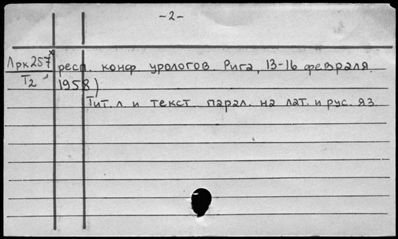 -2-
Лрк257 респ. конф урологов Рига, 13-16 февраля.
Т2 1958)
Тит. л и текст парал. на лат. и рус. яз.